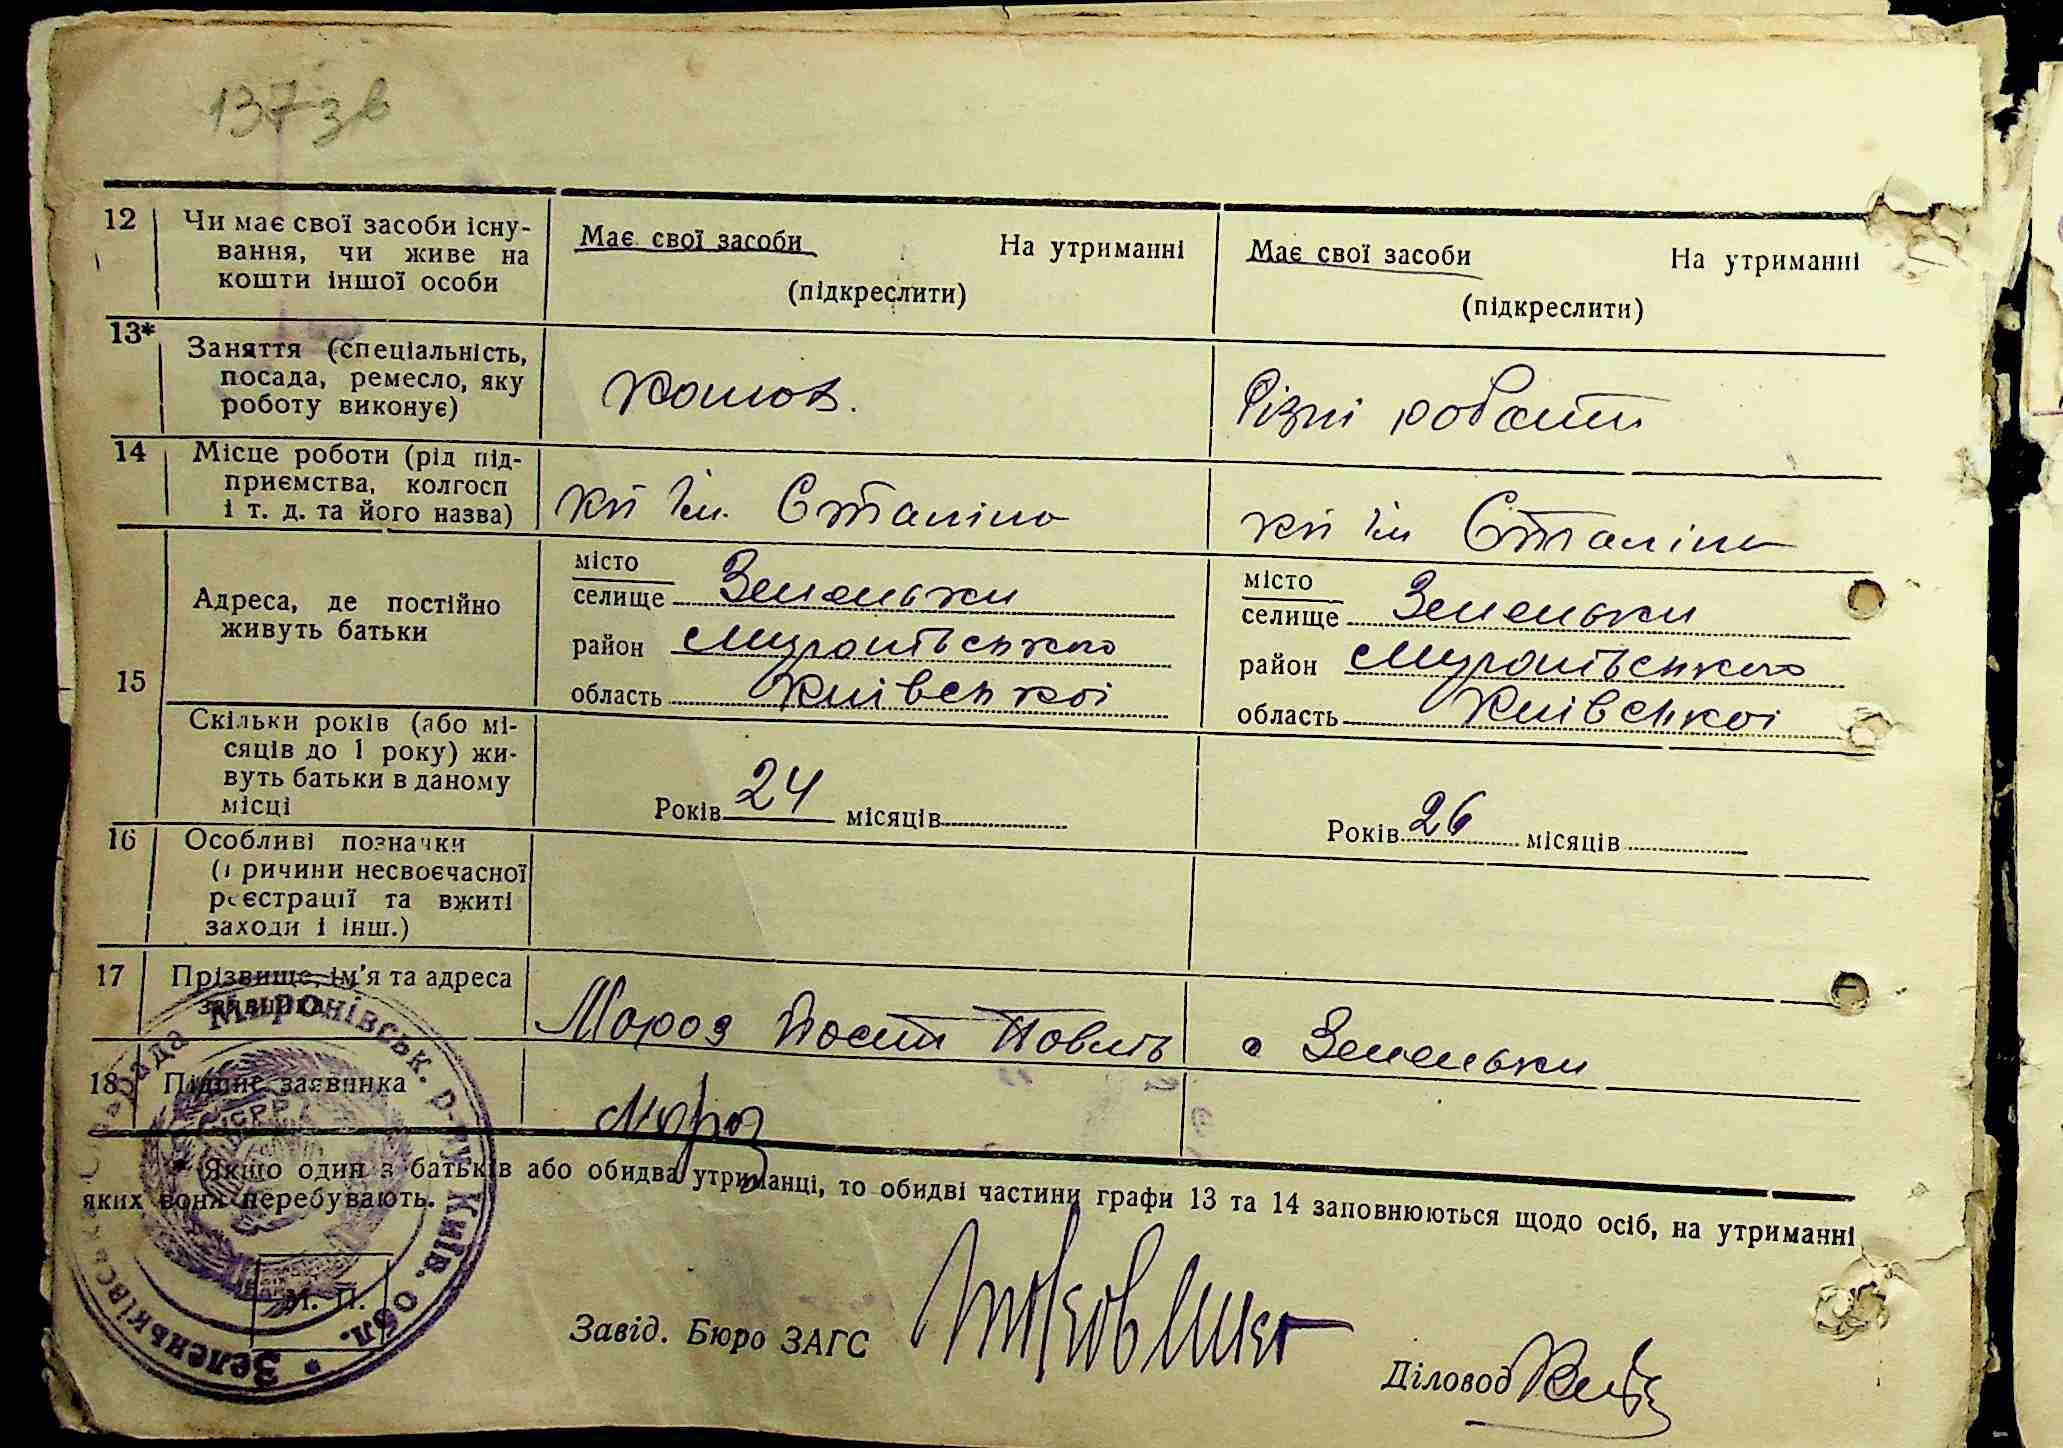 137 зв
12 Чи має свої засоби існу-
вання, чи живе на
кошти іншої особи
Має свої засоби На утриманні
(підкреслити)
Має свої засоби На утриманні
(підкреслити)
13* Заняття (спеціальність,
посада, ремесло, яку
роботу виконує)
Різні роботи
14 Місце роботи (рід під-
приємства, колгосп
і т. д. та його назва)
кп ім. Сталіна
кп ім Сталіна
15
Адреса, де постійно
живуть батьки
місто
селище Зеленьки
район Миронівського
область Київської
місто
селище Зеленьки
район Миронівського
область Київської
Скільки років (або мі-
сяців до 1 року) жи-
вуть батьки в даному
місці
Років 24 місяців
Років 26 місяців
16 Особливі позначки
(причини несвоєчасної
реєстрації та вжиті
заходи і інш.)
17 Прізвище, ім'я та адреса
заявника
Мороз Йосип Повлов с Зеленьки
18 Підпис заявника
Мороз
* Якщо один з батьків або обидва утриманці, то обидві частини графи 13 та 14 заповнюються щодо осіб, на утриманні
яких вони перебувають.
М. П.
Зеленьківська рада Миронівськ. р-ну Київ. обл.
Завід. Бюро ЗАГС
Діловод